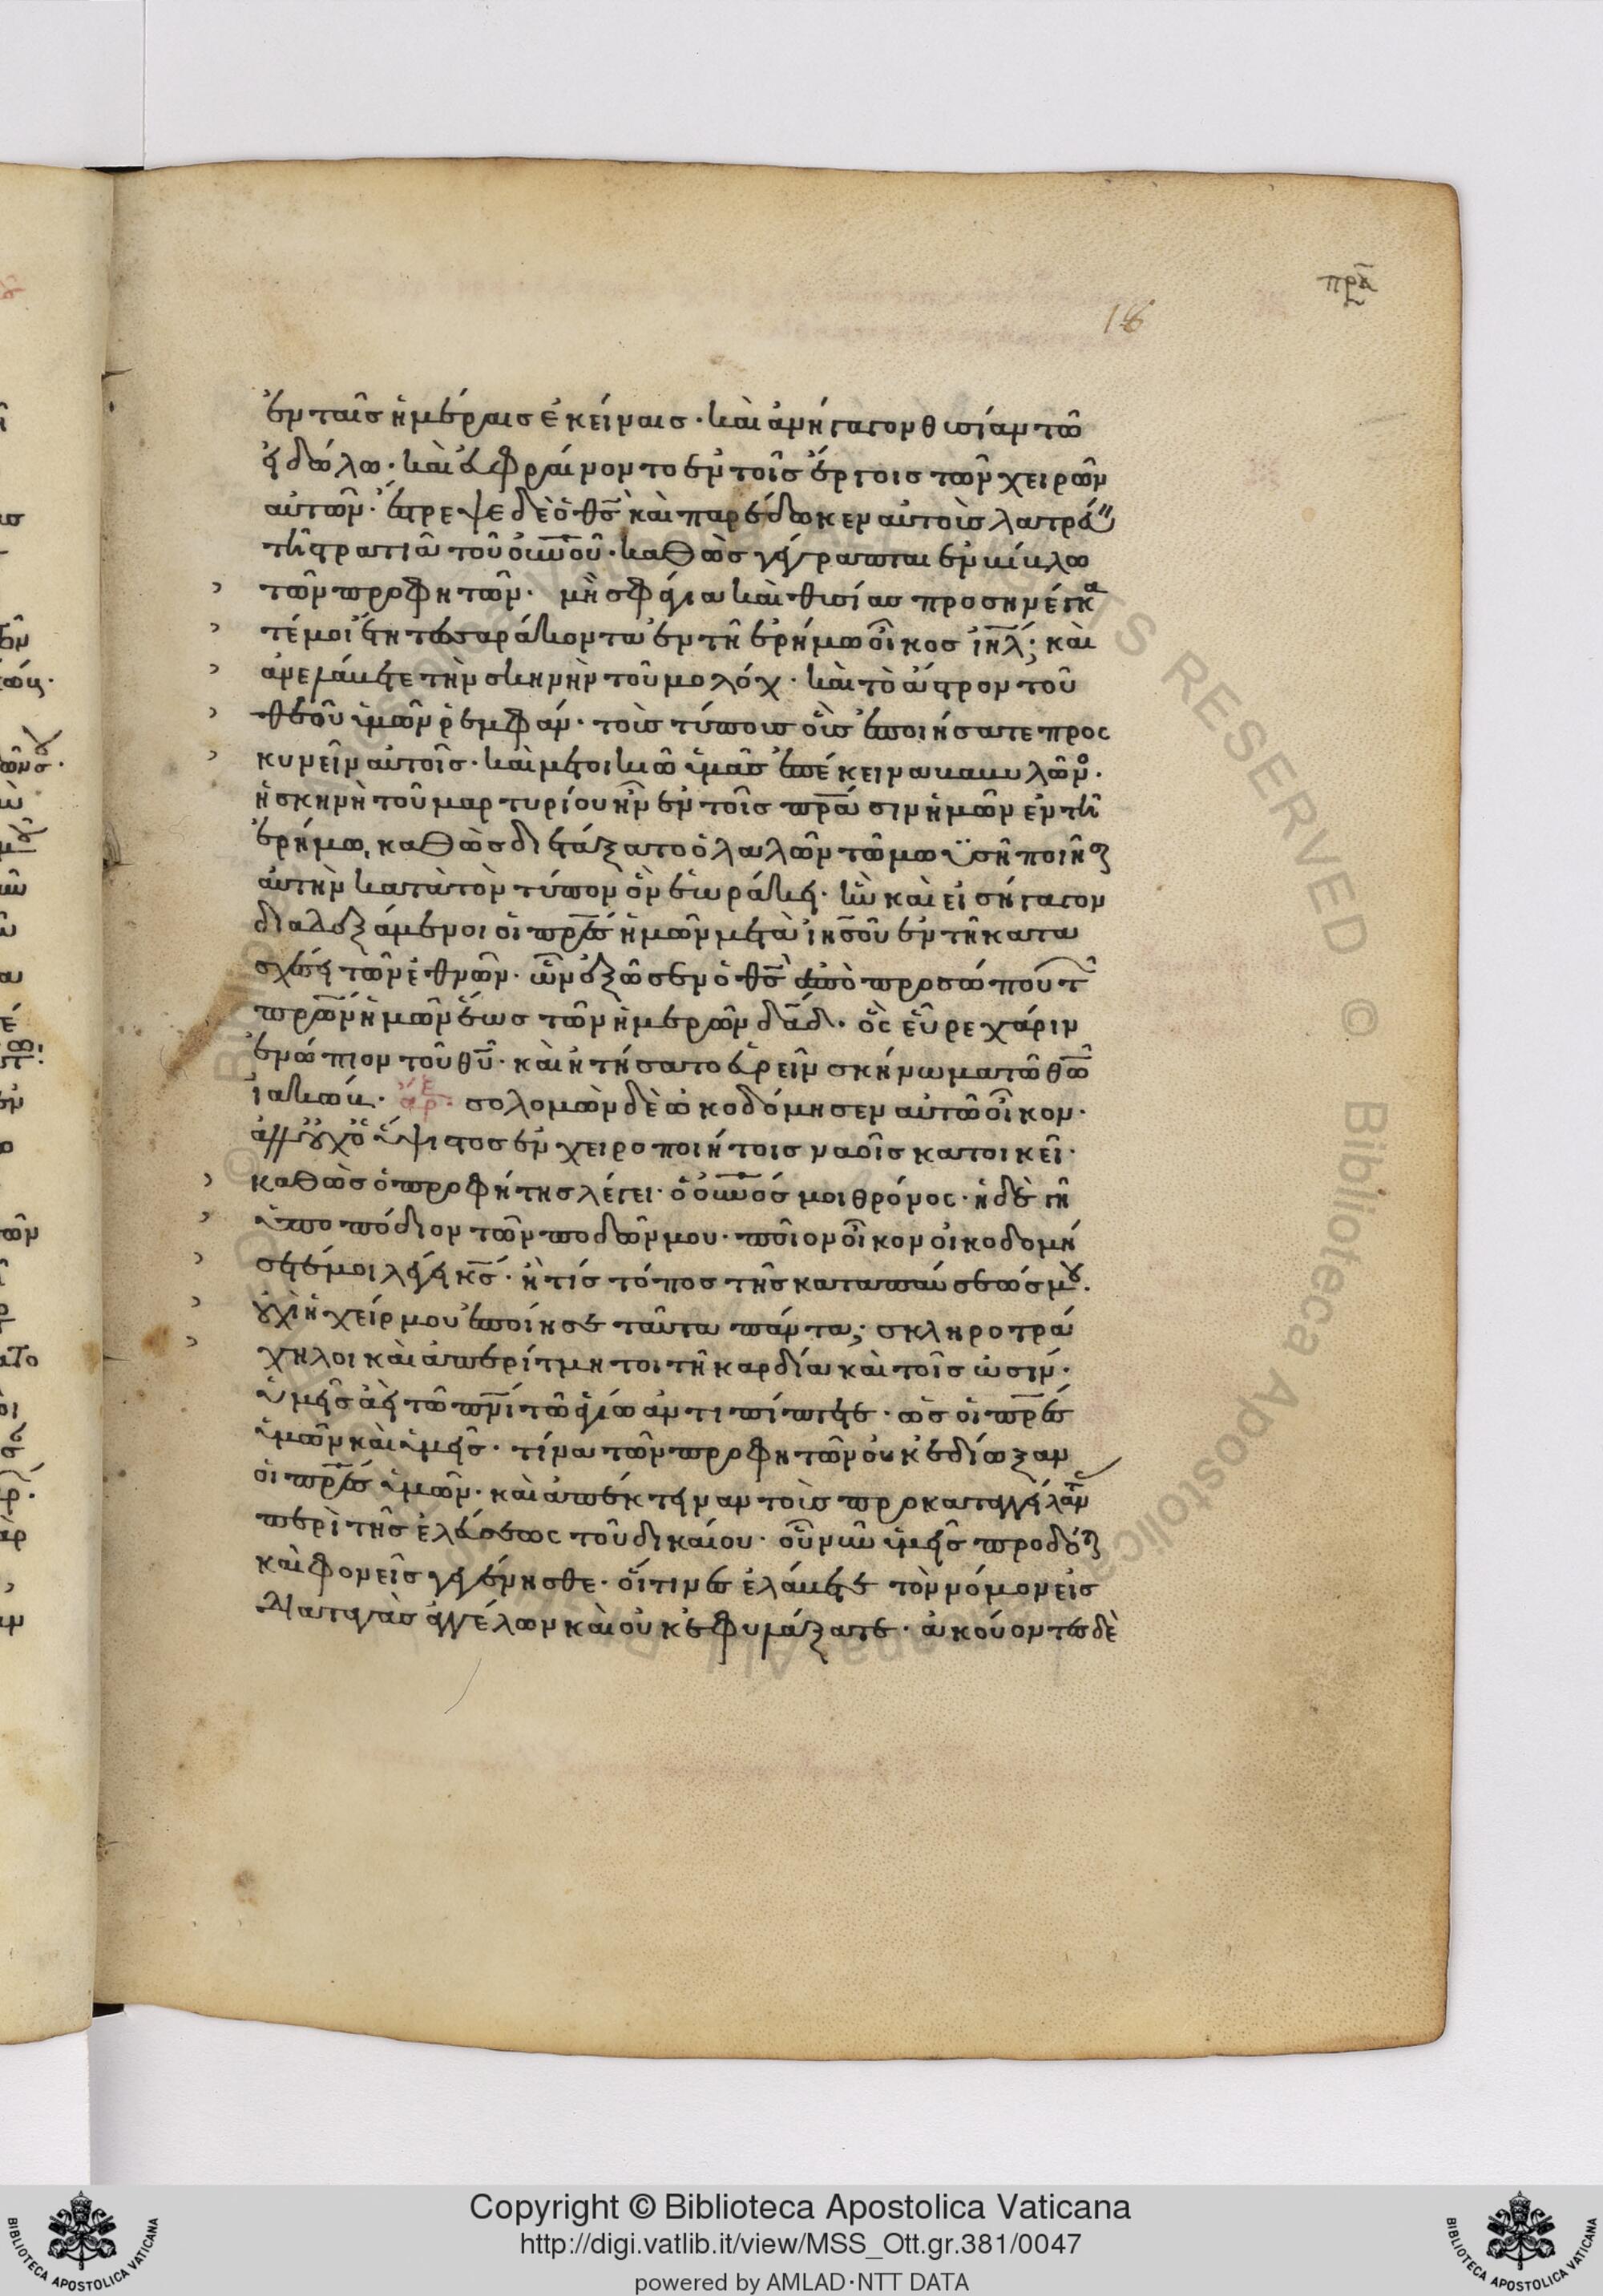 πρα
16
ἐν ταῖς ἡμέραις ἐκείναις· καὶ ἀνήγαγον θυσίαν τῶ
εἰδώλω· καὶ εὐφραίνοντο ἐν τοῖς ἔργοις τῶν χειρῶν
αὐτῶν· ἔστρεψε δὲ ὁ θς καὶ παρέδωκεν αὐτοὺς λατρεύ
τῆ στρατιᾶ τοῦ οὐνοῦ· καθὼς γέγραπται ἐν κύκλω
τῶν προφητῶν· μὴ σφάγια καὶ θυσίας προσηνέγκα
τέ μοι ἔτη τεσσαράκοντα ἐν τῆ ἐρήμω οἶκος ἰηλ; καὶ
ἀνελάβετε τὴν σκηνὴν τοῦ μολόχ· καὶ τὸ ἄστρον τοῦ
θεοῦ ὑμῶν ῥεμφάν· τοὺς τύπους οὓς ἐποιήσατε προς
κυνεῖν αὐτοῖς· καὶ μετοικιῶ ὑμᾶς ἐπέκεινα βαβυλῶνο·
ἡ σκηνὴ τοῦ μαρτυρίου ἦν ἐν τοῖς πράσιν ἡμῶν ἐν τῆ
ἐρήμω, καθὼς διετάξατο ὁ λαλῶν τῶ μωϋσῆ ποιῆσ
αὐτὴν κατὰ τὸν τύπον ὃν ἑωράκει· ἣν καὶ εἰσήγαγον
διαδεξάμενοι οἱ πρες ἡμῶν μετὰ ἰησοῦ ἐν τῆ κατα
σχέσει τῶν ἐθνῶν· ὧν ἐξῶσεν ὁ θς ἀπὸ προσώπου τ
πρων ἡμῶν ἕως τῶν ἡμερῶν δαδ· ὃς εὗρε χάριν
ἐνώπιον τοῦ θυ· καὶ ἠτήσατο εὑρεῖν σκήνωμα τῶ θω
ἰακώβ· ἀρ· σολομὼν δὲ ὠκοδόμησεν αὐτῶ οἶκον·
ἀλλ οὐχ ὁ ὕψιστος ἐν χειροποιήτοις ναοῖς κατοικεῖ·
καθὼς ὁ προφήτης λέγει· ὁ οὐνός μοι θρόνος· ἡ δὲ γῆ
ὑποπόδιον τῶν ποδῶν μου· ποῖον οἶκον οἰκοδομή
σετέ μοι λέγει κς· ἢ τίς τόπος τῆς καταπαύσεώς μου·
οὐχὶ ἡ χείρ μου ἐποίησε ταῦτα πάντα; σκληροτρά
χηλοι καὶ ἀπερίτμητοι τῆ καρδία καὶ τοῖς ὠσίν·
ὑμεῖς ἀεὶ τῶ πνι τῶ ἁγίω ἀντιπίπτετε· ὡς οἱ πρες
ὑμῶν καὶ ὑμεῖς· τίνα τῶν προφητῶν οὐκ ἐδίωξαν
οἱ πρες ὑμῶν· καὶ ἀπέκτειναν τοὺς προκαταγγείλαντ
περὶ τῆς ἐλεύσεως τοῦ δικαίου· οὗ νῦν ὑμεῖς προδότ
καὶ φονεῖς γεγένησθε· οἵτινες ἐλάβετε τὸν νόμον εἰς
διαταγὰς ἀγγέλων καὶ οὐκ ἐφυλάξατε· ἀκούοντες δὲ
Copyright © Biblioteca Apostolica Vaticana
http://digi.vatlib.it/view/MSS_Ott.gr.381/0047
powered by AMLAD·NTT DATA